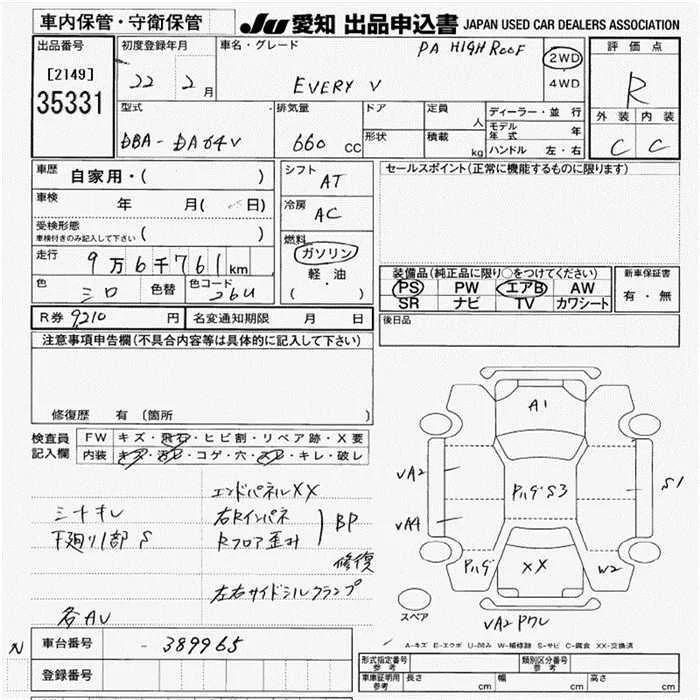 車内保管・守衛保管
JU 愛知 出品申込書 JAPAN USED CAR DEALERS ASSOCIATION
出品番号
[2149]
35331
初度登録年月
22 2月
車名・グレード
PA HIGH ROOF
EVERY V
2WD
4WD
評価点
R
外装 内装
C C
型式
DBA-DA64V
排気量
660 CC
ドア
形状
定員
人
積載
kg
ディーラー・並行
モデル年式 年
ハンドル 左・右
車歴 自家用・( )
車検 年 月( 日)
受検形態
車検付きのみ記入して下さい ( )
走行 9万6千761km
色 シロ 色替 色コード 26U
シフト AT
冷房 AC
燃料
ガソリン
軽・油
( )
セールスポイント(正常に機能するものに限ります)
装備品(純正品に限り○をつけてください)
PS PW エアB AW
SR ナビ TV カワシート
新車保証書
有・無
R券 9,210 円 名変通知期限 月 日
後日品
注意事項申告欄(不具合内容等は具体的に記入して下さい)
修復歴 有(箇所 )
検査員記入欄
FW キズ・飛石・ヒビ割・リペア跡・X要
内装 キズ・汚レ・コゲ・穴・スレ・キレ・破レ
エンドパネルXX
シートスレ
右Rインパネ
下廻り1部S
Rフロア歪み
BP
修復
左右サイドシルクランプ
各AU
A1
UA2
UA4
パハゲS3
S1
パハゲ
XX
W2
スペア
UA2 Pワレ
A-キズ E-エクボ U-凹み W-補修跡 S-サビ C-腐食 XX-交換済
N
車台番号 -389965
登録番号
形式指定番号 参考
類別区分番号 参考
車庫証明用 参考 長さ cm 幅 cm 高さ cm